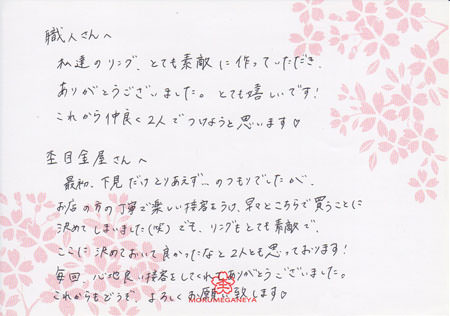 職人さんへ
私達のリング、とても素敵に作っていただき、
ありがとうございました。とても嬉しいです!
これから仲良く2人でつけようと思います♡
杢目金屋さんへ
最初、下見だけとりあえず…のつもりでしたが、
お店の方の丁寧で楽しい接客をうけ、早々とこちらで買うことに
決めてしまいました(笑)でも、リングもとても素敵で、
ここに決めておいて良かったなと2人とも思っております!
毎回 心地良い接客をしてくれてありがとうございました。
これからもどうぞ、よろしくお願い致します♡
MOKUMEGANEYA